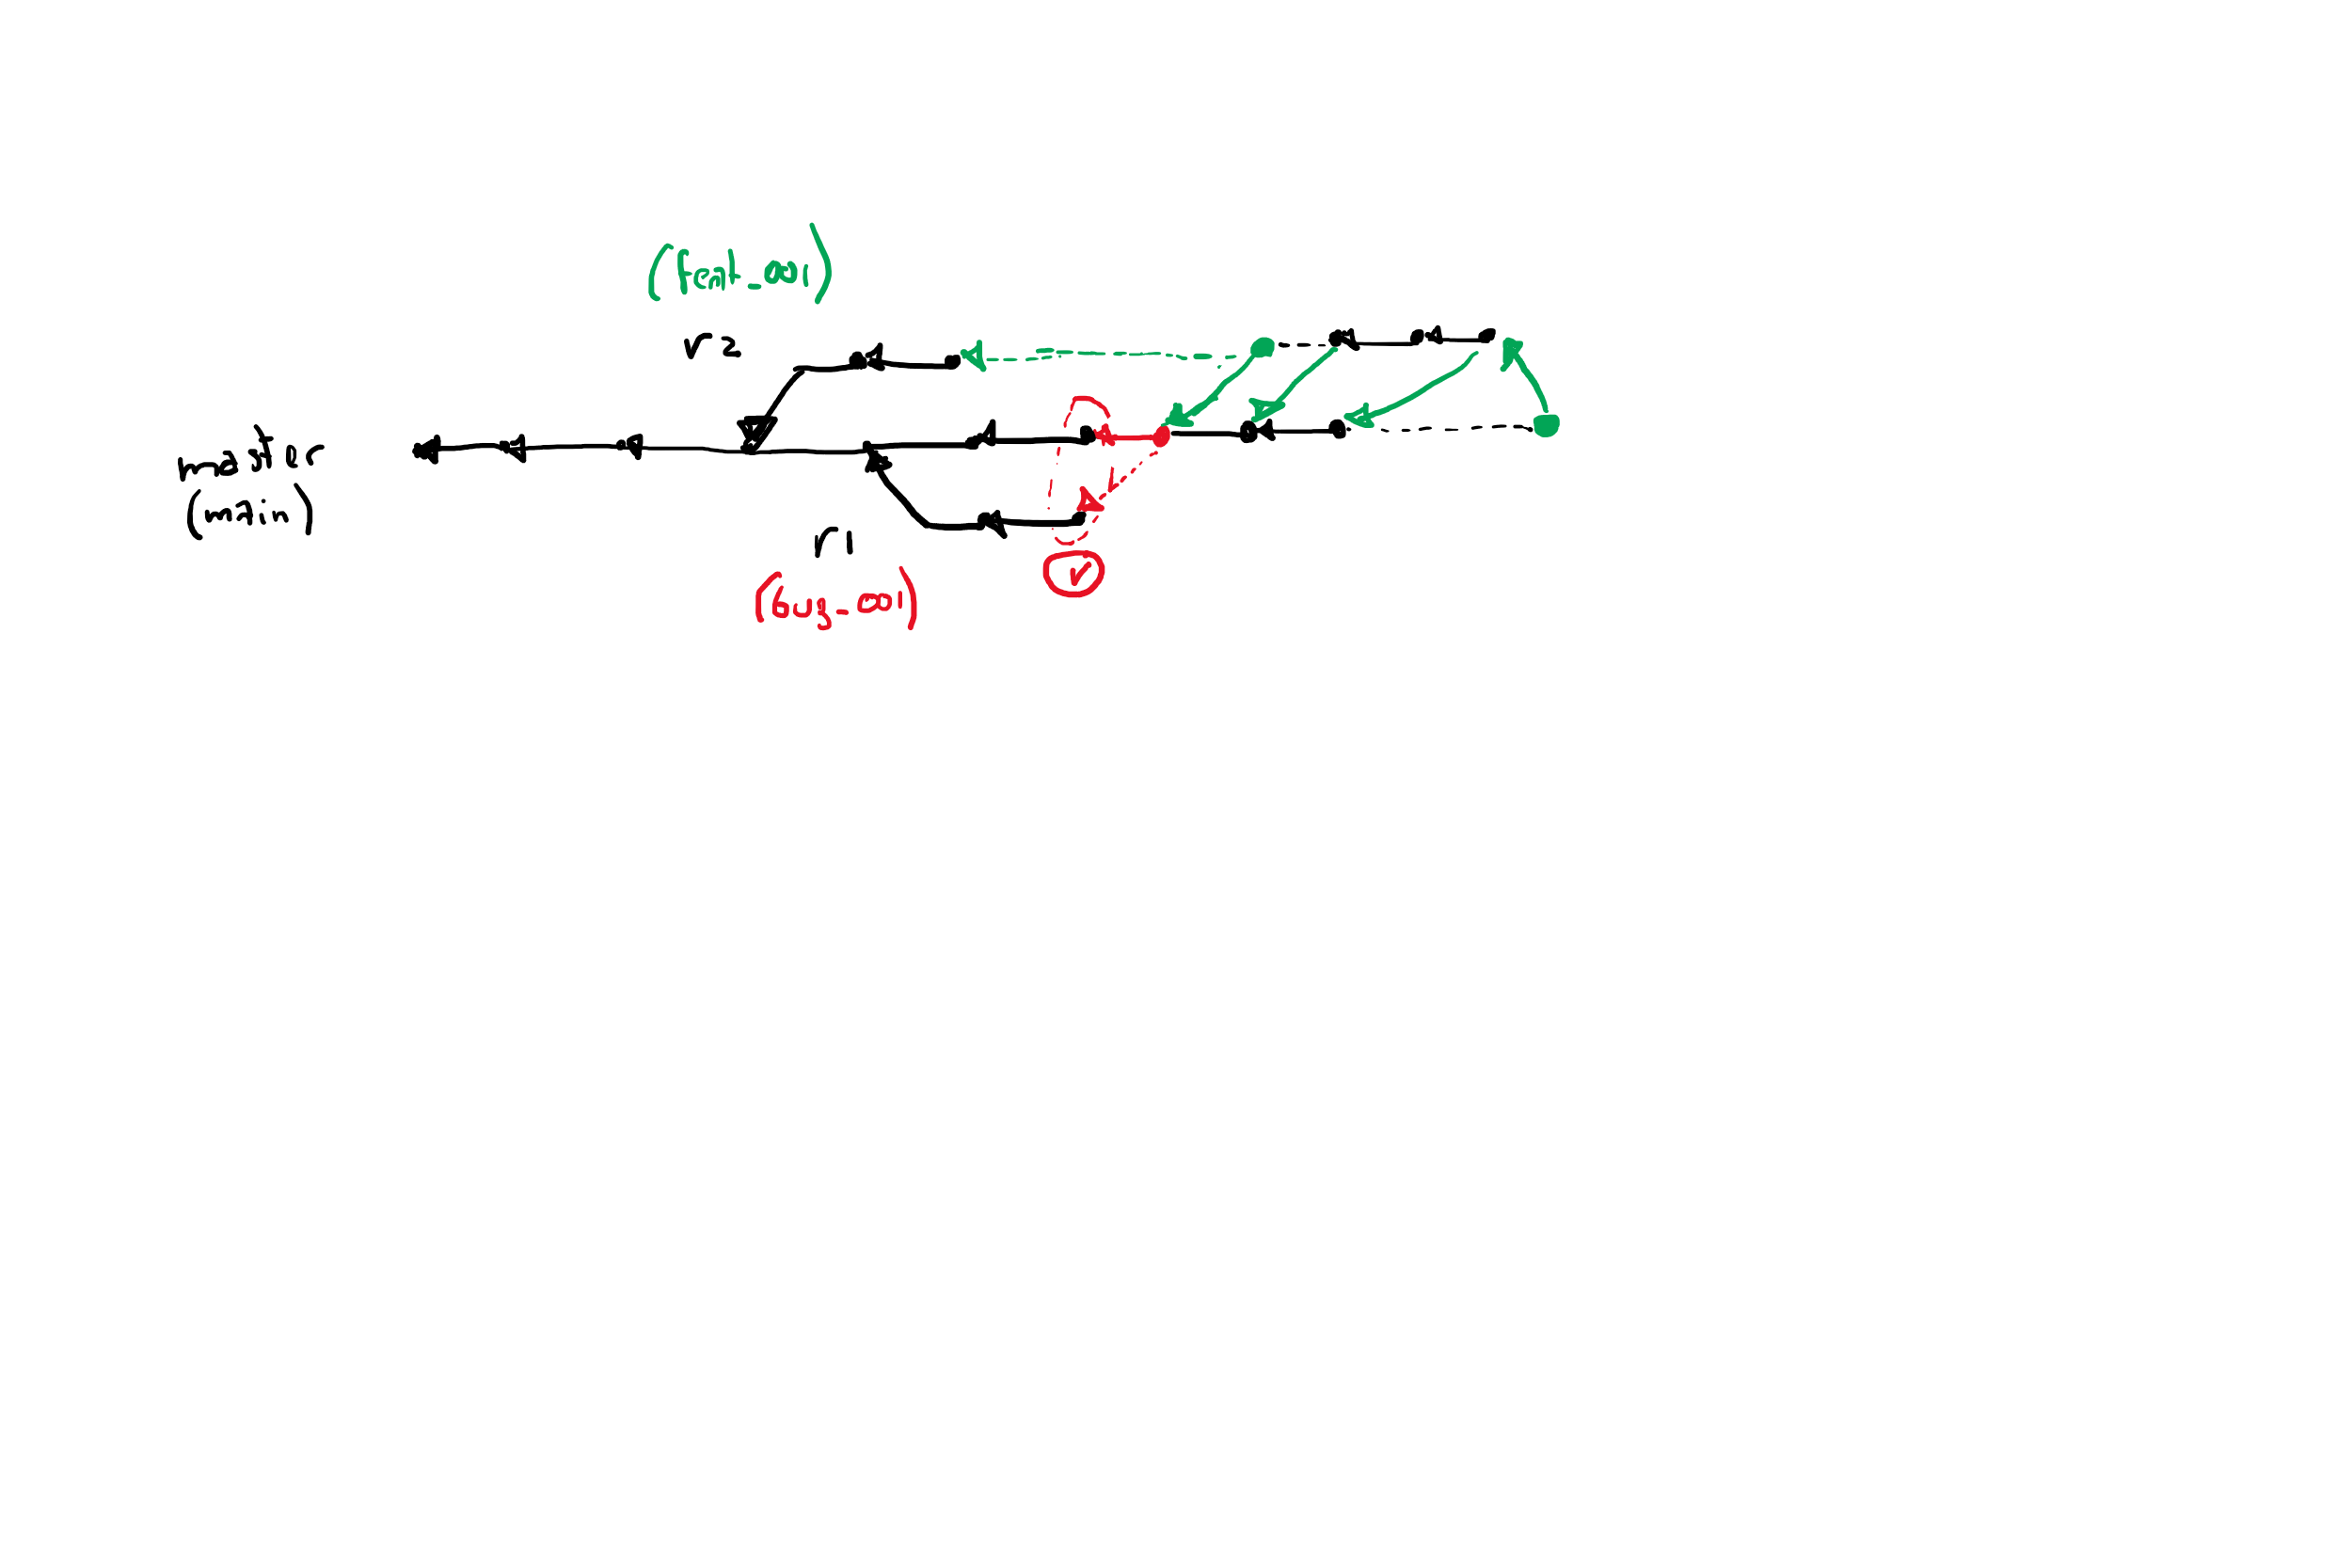 (feat_001)
r2
master
(main)
r1
(bug_001)
v